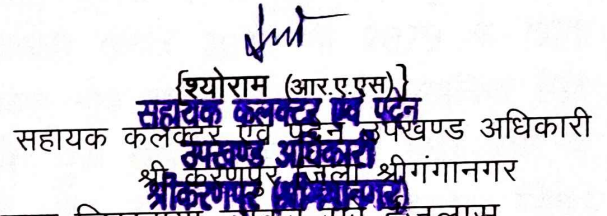 {श्योराम (आर.ए.एस)}
सहायक कलक्टर एवं पदेन
सहायक कलक्टर एवं पदेन उपखण्ड अधिकारी
उपखण्ड अधिकारी
श्री करणपुर जिला श्रीगंगानगर
श्रीकरणपुर (श्रीगंगानगर)